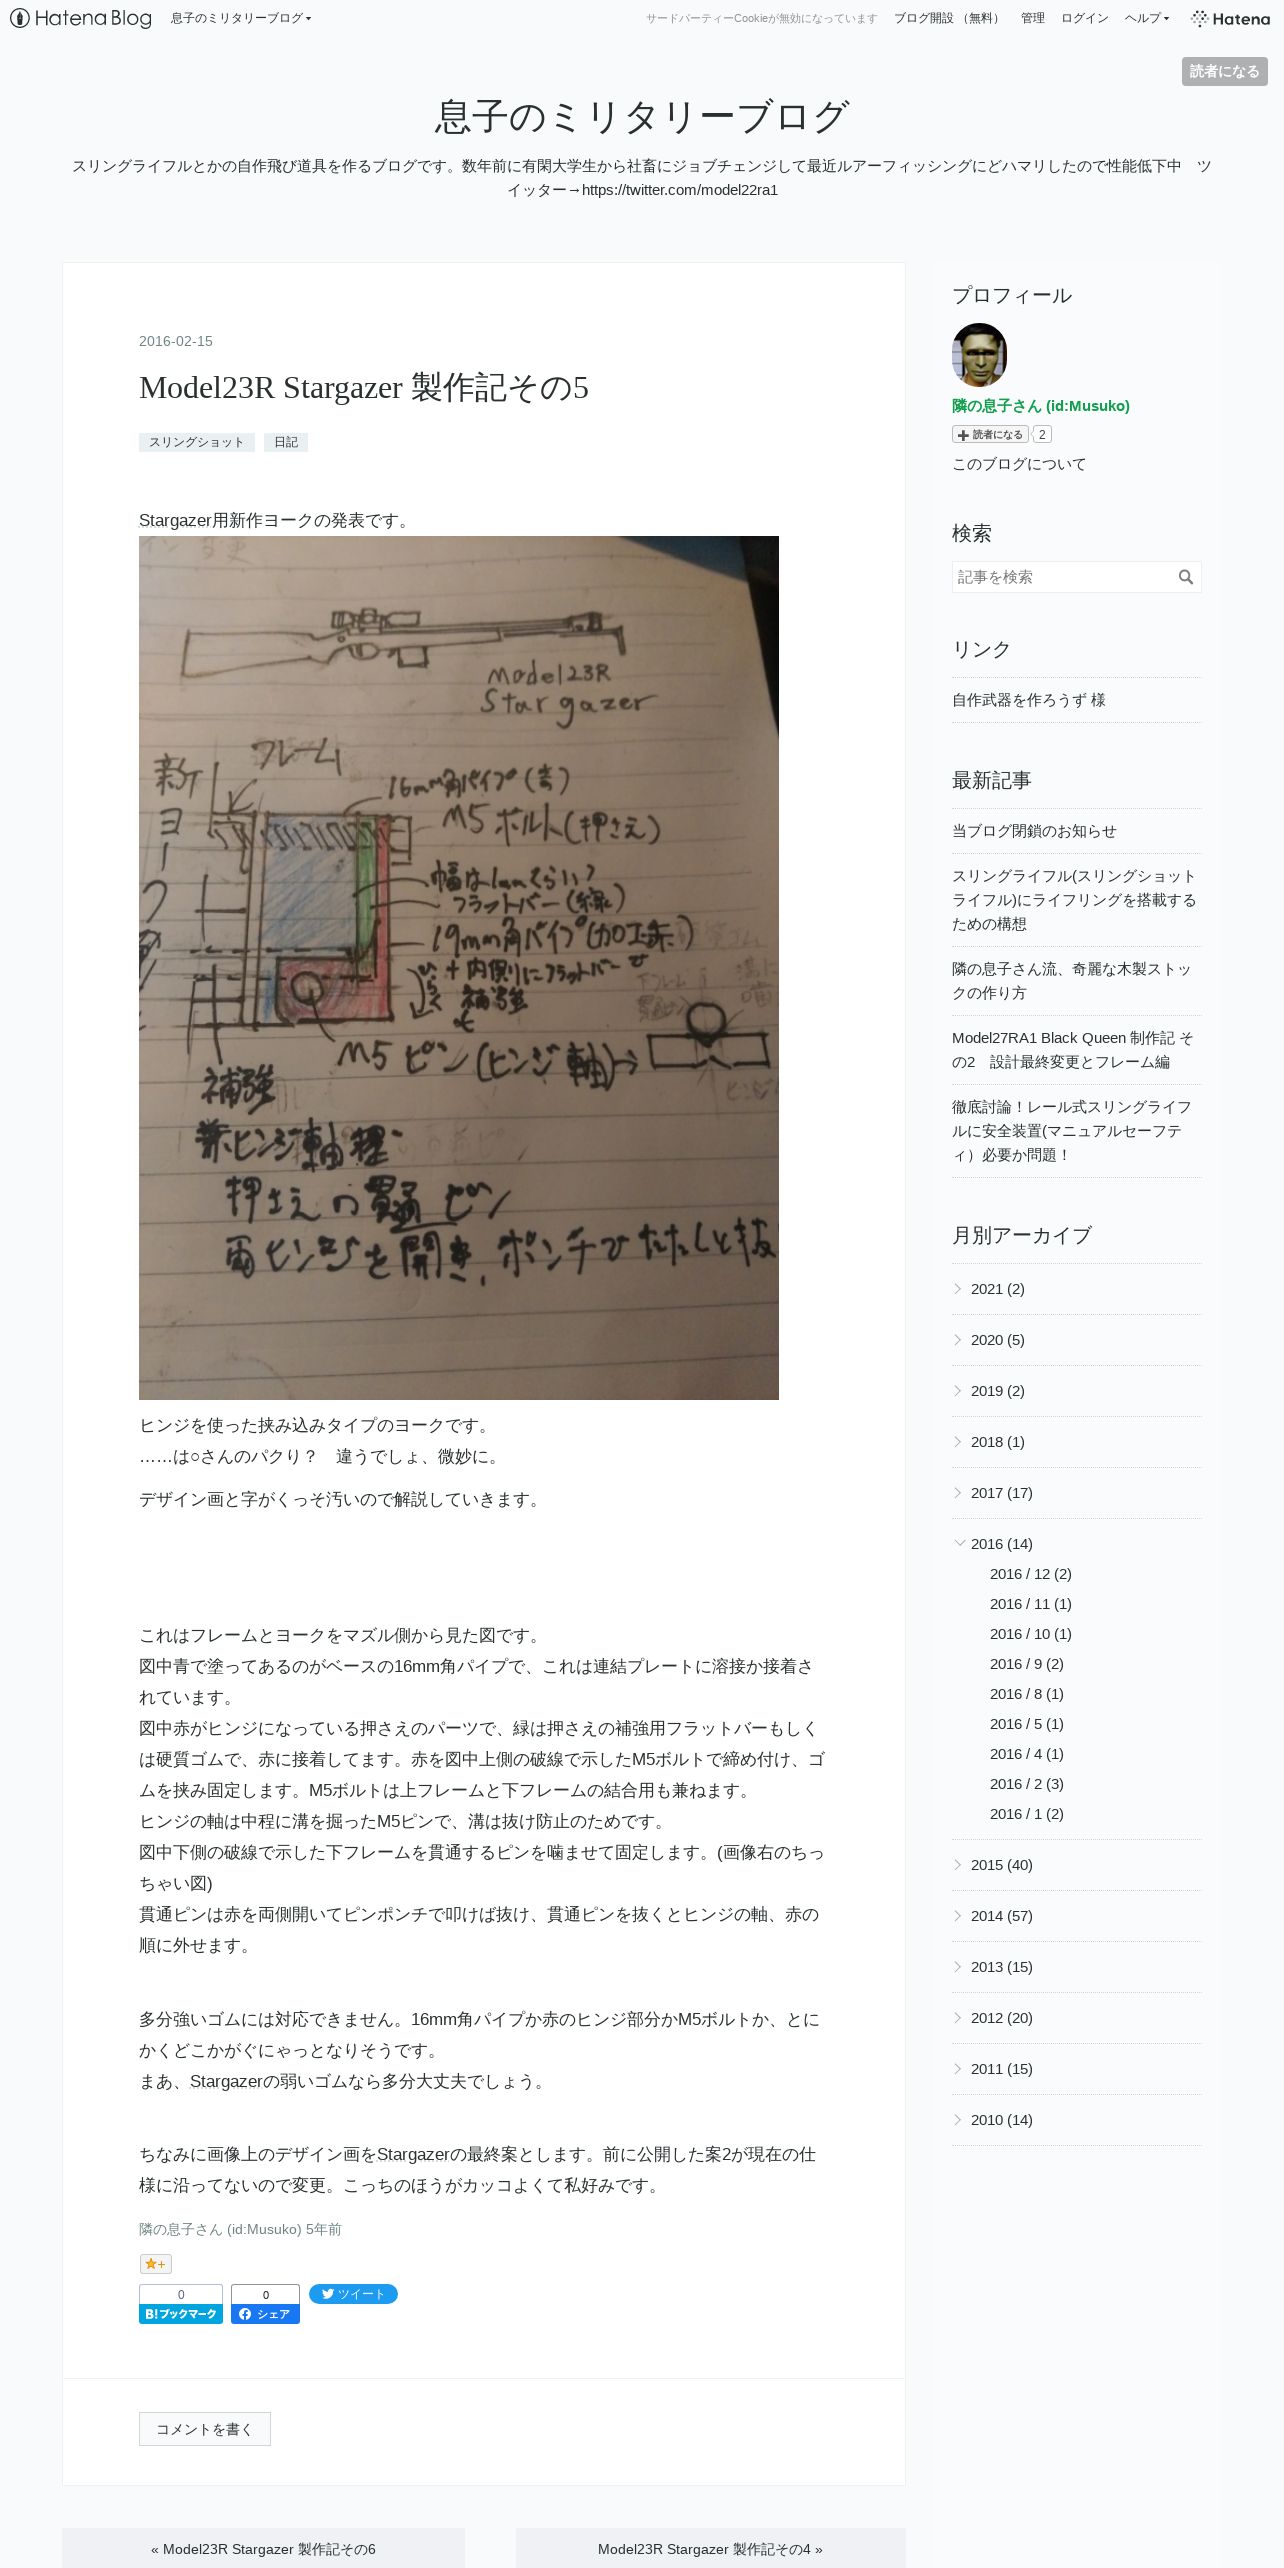 Hatena Blog
息子のミリタリーブログ
サードパーティーCookieが無効になっています
ブログ開設（無料）
管理
ログイン
ヘルプ
Hatena
読者になる
息子のミリタリーブログ
スリングライフルとかの自作飛び道具を作るブログです。数年前に有閑大学生から社畜にジョブチェンジして最近ルアーフィッシングにどハマリしたので性能低下中　ツ
イッター→https://twitter.com/model22ra1
2016-02-15
Model23R Stargazer 製作記その5
スリングショット
日記
Stargazer用新作ヨークの発表です。
Model23R
Stargazer
新
ヨーク
フレーム
16mm角パイプ(青)
M5ボルト(押さえ)
幅は1mmくらい?
フラットバー(緑)
19mm角パイプ(加工赤)
+内側にフラットバーで
補強
M5ピン(ヒンジ軸)
補強
兼ヒンジ軸
押さえの貫通ピン
両ヒンジを開き、ポンチでたたくと抜
ヒンジを使った挟み込みタイプのヨークです。
……は○さんのパクり？　違うでしょ、微妙に。
デザイン画と字がくっそ汚いので解説していきます。
これはフレームとヨークをマズル側から見た図です。
図中青で塗ってあるのがベースの16mm角パイプで、これは連結プレートに溶接か接着さ
れています。
図中赤がヒンジになっている押さえのパーツで、緑は押さえの補強用フラットバーもしく
は硬質ゴムで、赤に接着してます。赤を図中上側の破線で示したM5ボルトで締め付け、ゴ
ムを挟み固定します。M5ボルトは上フレームと下フレームの結合用も兼ねます。
ヒンジの軸は中程に溝を掘ったM5ピンで、溝は抜け防止のためです。
図中下側の破線で示した下フレームを貫通するピンを噛ませて固定します。(画像右のちっ
ちゃい図)
貫通ピンは赤を両側開いてピンポンチで叩けば抜け、貫通ピンを抜くとヒンジの軸、赤の
順に外せます。
多分強いゴムには対応できません。16mm角パイプか赤のヒンジ部分かM5ボルトか、とに
かくどこかがぐにゃっとなりそうです。
まあ、Stargazerの弱いゴムなら多分大丈夫でしょう。
ちなみに画像上のデザイン画をStargazerの最終案とします。前に公開した案2が現在の仕
様に沿ってないので変更。こっちのほうがカッコよくて私好みです。
隣の息子さん (id:Musuko) 5年前
0
B!ブックマーク
0
シェア
ツイート
コメントを書く
« Model23R Stargazer 製作記その6
Model23R Stargazer 製作記その4 »
プロフィール
隣の息子さん (id:Musuko)
読者になる
2
このブログについて
検索
記事を検索
リンク
自作武器を作ろうず 様
最新記事
当ブログ閉鎖のお知らせ
スリングライフル(スリングショット
ライフル)にライフリングを搭載する
ための構想
隣の息子さん流、奇麗な木製ストッ
クの作り方
Model27RA1 Black Queen 制作記 そ
の2　設計最終変更とフレーム編
徹底討論！レール式スリングライフ
ルに安全装置(マニュアルセーフテ
ィ）必要か問題！
月別アーカイブ
2021 (2)
2020 (5)
2019 (2)
2018 (1)
2017 (17)
2016 (14)
2016 / 12 (2)
2016 / 11 (1)
2016 / 10 (1)
2016 / 9 (2)
2016 / 8 (1)
2016 / 5 (1)
2016 / 4 (1)
2016 / 2 (3)
2016 / 1 (2)
2015 (40)
2014 (57)
2013 (15)
2012 (20)
2011 (15)
2010 (14)